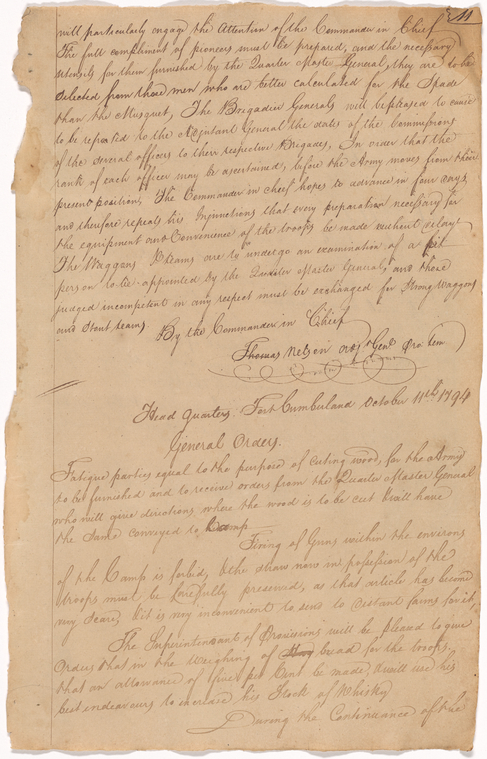 11
will particularly engage the Attention of the Commander in Chief
The full compliment of pioneers must be prepared, and the necessary
utensils for them furnished by the Quarter Master General, they are to be
Selected from those men who are better calculated for the Spade
than the Musquet, The Brigadier Generals will be pleased to cause
to be reported to the Adjutant General the dates of the Commissions
of the several officers to their respective Brigades, In order that the
rank of each officer may be ascertained, before the Army moves from their
present position, The Commander in cheif hopes to advance in four days
and therefore repeats his Injunctions that every preparation necessary for
the equipment and Convenience of the troops be made without delay
The Waggons & teams are to undergo an examination of a fit
person to be appointed by the Quarter Master General, and those
judged incompetent in any respect must be exchanged for Strong Waggons
and Stout teams
By the Commander in Chief
Thomas Nelson adjt Genl Pro. tem
Head quarters, Fort Cumberland October 11th 1794
General Orders.
Fatigue parties equal to the purpose of cuting wood, for the Army
to be furnished and to receive orders from the Quarter Master General
who will give directions where the wood is to be cut & will have
the Same conveyed to Camp
Firing of Guns within the environs
of the Camp is forbid, & the straw now in possession of the
troops must be carefully preserved, as that article has become
very Scarce & it is very inconvenient to send to distant farms for it,
The Superintendant of Provisions will be pleased to give
Orders that in the Weighing of bread for the troops
that an allowance of five pr Cent be made, & will use his
best endeavours to increase his Stock of Whisky
During the Continuance of the